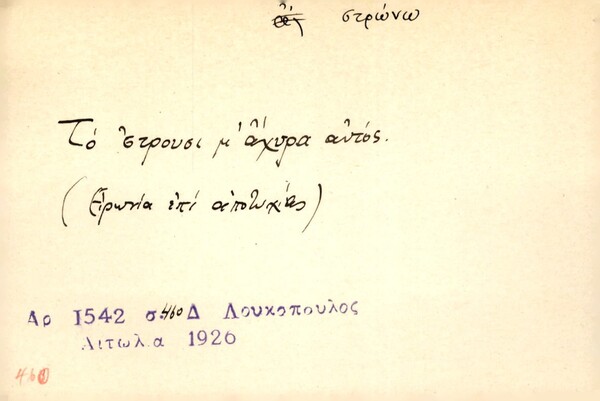 στρώνω
Τό ἔστρουσι μ' ἄχυρα αὐτός.
(Εἰρωνία ἐπί ἀποτυχίας)
Αρ 1542 σ 460 Δ Λουκοπουλος
Αιτωλ.α 1926